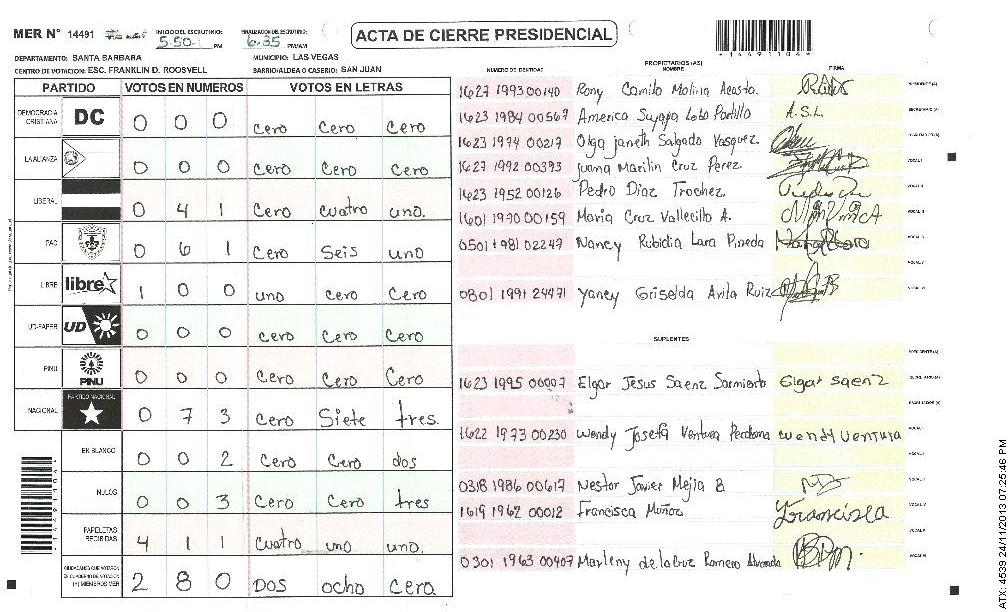 MER N° 14491
INICIO DEL ESCRUTINIO:
5:50 PM
FINALIZACION DEL ESCRUTINIO:
6:35 PM/AM
ACTA DE CIERRE PRESIDENCIAL
14491104
DEPARTAMENTO: SANTA BARBARA
MUNICIPIO: LAS VEGAS
CENTRO DE VOTACION: ESC. FRANKLIN D. ROOSVELL
BARRIO/ALDEA O CASERIO: SAN JUAN
PARTIDO VOTOS EN NUMEROS VOTOS EN LETRAS
DEMOCRACIA CRISTIANA DC 0 0 0 cero cero cero
LA ALIANZA 0 0 0 cero cero cero
LIBERAL 0 4 1 cero cuatro uno.
PAC 0 6 1 cero Seis uno
LIBRE libre 1 0 0 uno cero cero
UD-FAPER UD 0 0 0 cero cero cero
PINU PINU 0 0 0 cero cero cero
NACIONAL PARTIDO NACIONAL 0 7 3 cero Siete tres.
EN BLANCO 0 0 2 cero cero dos
NULOS 0 0 3 cero cero tres
PAPELETAS RECIBIDAS 4 1 1 cuatro uno uno.
CIUDADANOS QUE VOTARON EN CUADERNO DE VOTACION (+) MIEMBROS MER 2 8 0 DOS ocho cero
PROPIETARIOS (AS)
NUMERO DE IDENTIDAD NOMBRE FIRMA
1627 1993 00140 Rony Camilo Molina Acosta.
1623 1984 00567 America Suyapa Lobo Portillo A.S.L.
1623 1974 00217 Olga janeth Salgado Vasquez.
1627 1992 00393 juana Marilin Cruz Perez.
1623 1952 00126 Pedro Diaz Trochez.
1601 1970 00159 Maria Cruz Vallecillo A.
0501 1981 02247 Nancy Rubidia Lara Pineda
0801 1991 24471 Yancy Griselda Avila Ruiz
SUPLENTES
1623 1995 00007 Elgar Jesus Saenz Sarmiento Elgar Saenz
1622 1973 00230 Wendy Josefa Ventura Perdomo Wendy Ventura
0318 1986 00617 Nestor Javier Mejia B
1619 1962 00012 Francisca Muñoz Francisca
0301 1963 00407 Marleny de la Cruz Romero Alvarado
ATX: 4539 24/11/2013 07:25:46 PM